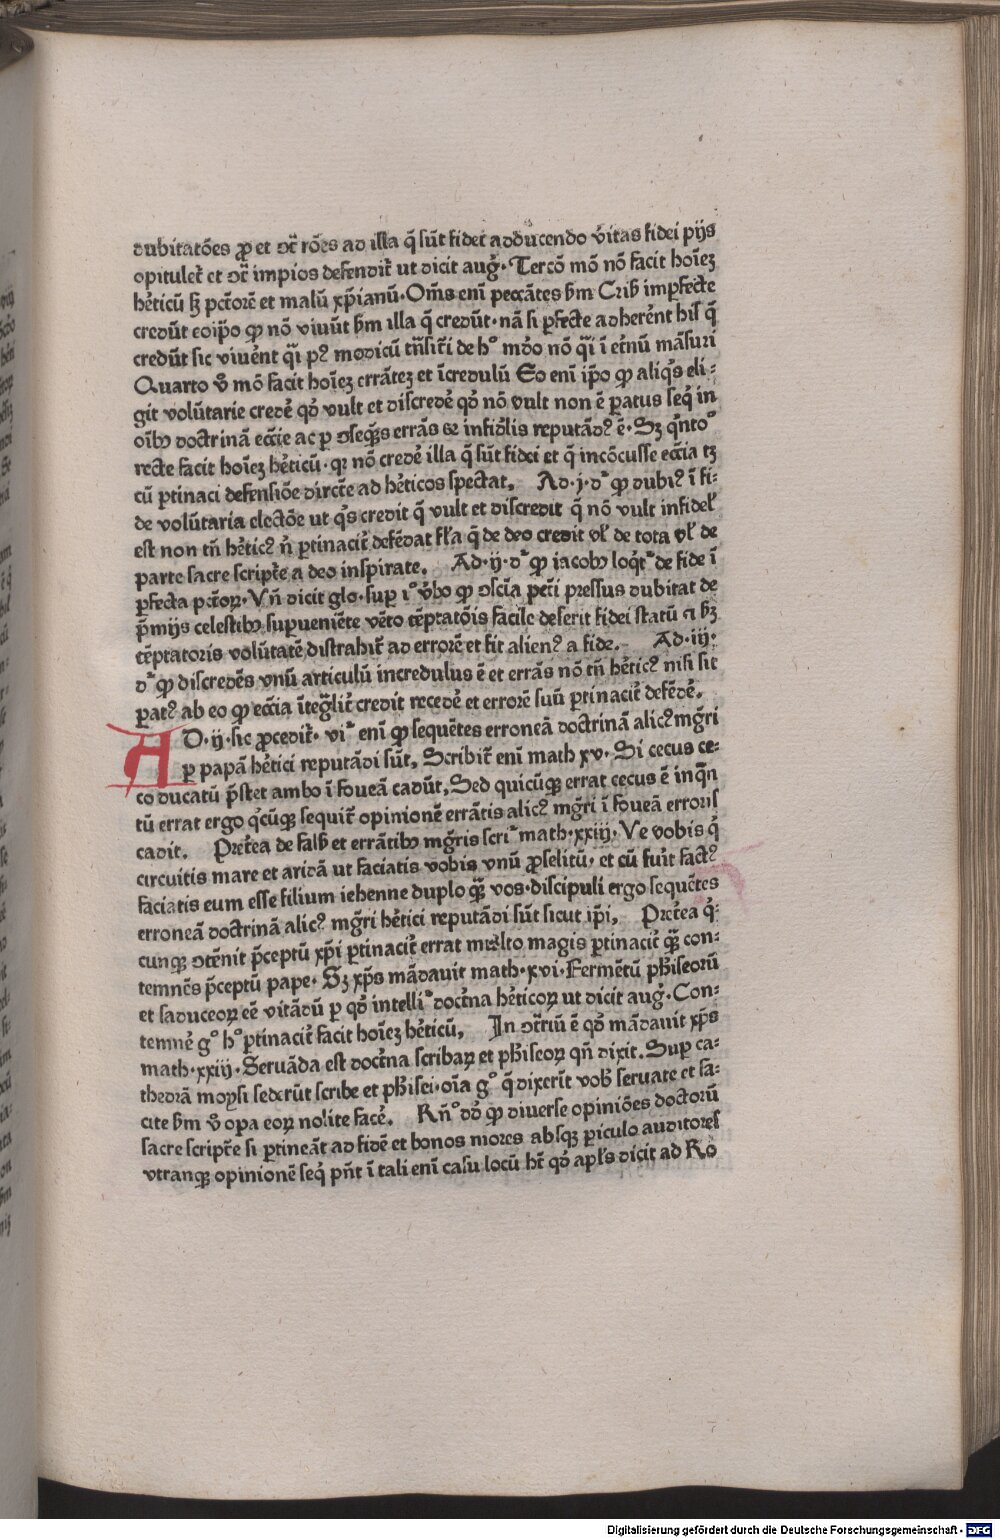 dubitatões ꝓ et ↄt̃ rões ad illa q̃ sũt fidei adducendo ṽitas fidei pijs
opitulet̃ et ↄt̃ impios defendit̃ ut dicit aug̃. Tercõ mõ nõ facit hoĩeꝫ
hẽticũ ẜꝫ pct̃orẽ et malũ xp̃ianũ. Om̃s eni᷑ peccãtes ẜm Crib̃ imꝑfecte
credũt eoip̃o ꝙ nõ viuũt ẜm illa q̃ credũt. nã si ꝑfecte adherẽnt hiſ q̃
credũt sic viuẽnt q̃i pꝰ modicũ tñsit̃i de hᵒ mũdo nõ q̃i ĩ et̃nũ mãsuri
Quarto v̾o mõ facit hoĩeꝫ errãteꝫ et ĩcredulũ Eo eni᷑ ip̃o ꝙ aliqͥs eli-
git volũtarie credẽ qđ vult et discredẽ qđ nõ vult non ẽ ꝑatus seqͥ in
oĩbꝰ doctrinã ecc̃ie ac ꝑ ↄseq̃s errãs & infidẽlis reputãdꝰ ẽ. Sꝫ qͥnto
recte facit hoĩeꝫ hẽticũ. qꝛ nõ credẽ illa q̃ sũt fidei et q̃ incõcusse ecc̃ia tꝫ
cũ ꝑtinaci defensiõe dirc̃te ad hẽticos spectat. Ad .j. dᵐ ꝙ dubiꝰ ĩ fi-
de volũtaria electõe ut qͥs credit q̃ vult et discredit q̃ nõ vult infidel̃
est non tñ hẽticꝰ ñ ꝑtinacit̃ defẽdat fl̃a q̃ de deo credit vl̾ de tota vl̾ de
parte sacre script̃e a deo inspirate. Ad .ij. dᵐ ꝙ iacobꝰ loqͥtᵘʳ de fide ĩ
ꝑfecta pct̃oꝝ. Vñ dicit glo. suꝑ iᵒ ṽbo ꝙ ↄscĩa pct̃i pressus dubitat de
p̃mijs celestibꝰ suꝑueniẽte vẽto tẽptatõis facile deserit fidei statũ ⁊ ẜꝫ
tẽptatoris volũtatẽ distrahit̃ ad errorẽ et fit alienꝰ a fide. Ad .iij.
dᵐ ꝙ discredẽs vnũ articulũ incredulus ẽ et errãs nõ tñ hẽticꝰ nisi sit
ꝑatꝰ ab eo ꝙ ecc̃ia ĩteg̃lit̃ credit recedẽ et errorẽ suũ ꝑtinacit̃ defẽdẽ.
AD .ij. sic ꝓcedit̃. viᵈʳ eni᷑ ꝙ sequẽtes erroneã doctrinã alicꝰ mg̃ri
ꝑ papã hẽtici reputãdi sũt. Scribit̃ eni᷑ math xv. Si cecus ce-
co ducatũ p̃stet ambo ĩ foueã cadũt. Sed quicũqꝫ errat cecus ẽ inq̃n
tũ errat ergo qͥcũqꝫ sequit̃ opinionẽ errãtis alicꝰ mg̃ri ĩ foueã erroris
cadit. Pret̃ea de fals̃ et errãtibꝰ mg̃ris scriᵗᵘʳ math. xxiij. Ve vobis qͥ
circuitis mare et aridã ut faciatis vobis vnũ ꝓselitũ. et cũ fuit̃ factꝰ
faciatis eum esse filium iehenne duplo q̃ꝫ vos. discipuli ergo sequẽtes
erroneã doctrinã alicꝰ mg̃ri hẽtici reputãdi sũt sicut ip̃i. Pret̃ea qͥ-
cunqꝫ ↄtẽnit p̃ceptũ xp̃i ꝑtinacit̃ errat multo magis ꝑtinacit̃ q̃ꝫ con-
temnẽs p̃ceptũ pape. Sꝫ xp̃s mãdauit math. xvi. Fermẽtũ ph̃iseorũ
et saduceoꝝ eẽ vitãdũ ꝑ qđ intelliᵗᵘʳ doct̃na hẽticoꝝ ut dicit aug̃. Con-
temnẽ gᵒ hᵒ ꝑtinacit̃ facit hoĩeꝫ hẽticũ. In ↄt̃riũ ẽ qđ mãdauit xp̃s
math. xxiij. Seruãda est doct̃na scribaꝝ et ph̃iseoꝝ qñ dixit. Suꝑ ca-
thedrã moysi sederũt scribe et ph̃isei. oĩa gᵒ q̃ dixerĩt vob̃ seruate et fa-
cite ẜm v̾o oꝑa eoꝝ nolite facẽ. Rñᵒ đđ ꝙ diuerse opiniões doctorũ
sacre script̃e si ꝑtineãt ad fidẽ et bonos mores absqꝫ ꝑiculo auditores
vtranqꝫ opinionẽ seqͥ pñt ĩ tali eni᷑ casu locũ ht̃ qđ apl̃s dicit ad Ro
Digitalisierung gefördert durch die Deutsche Forschungsgemeinschaft - DFG